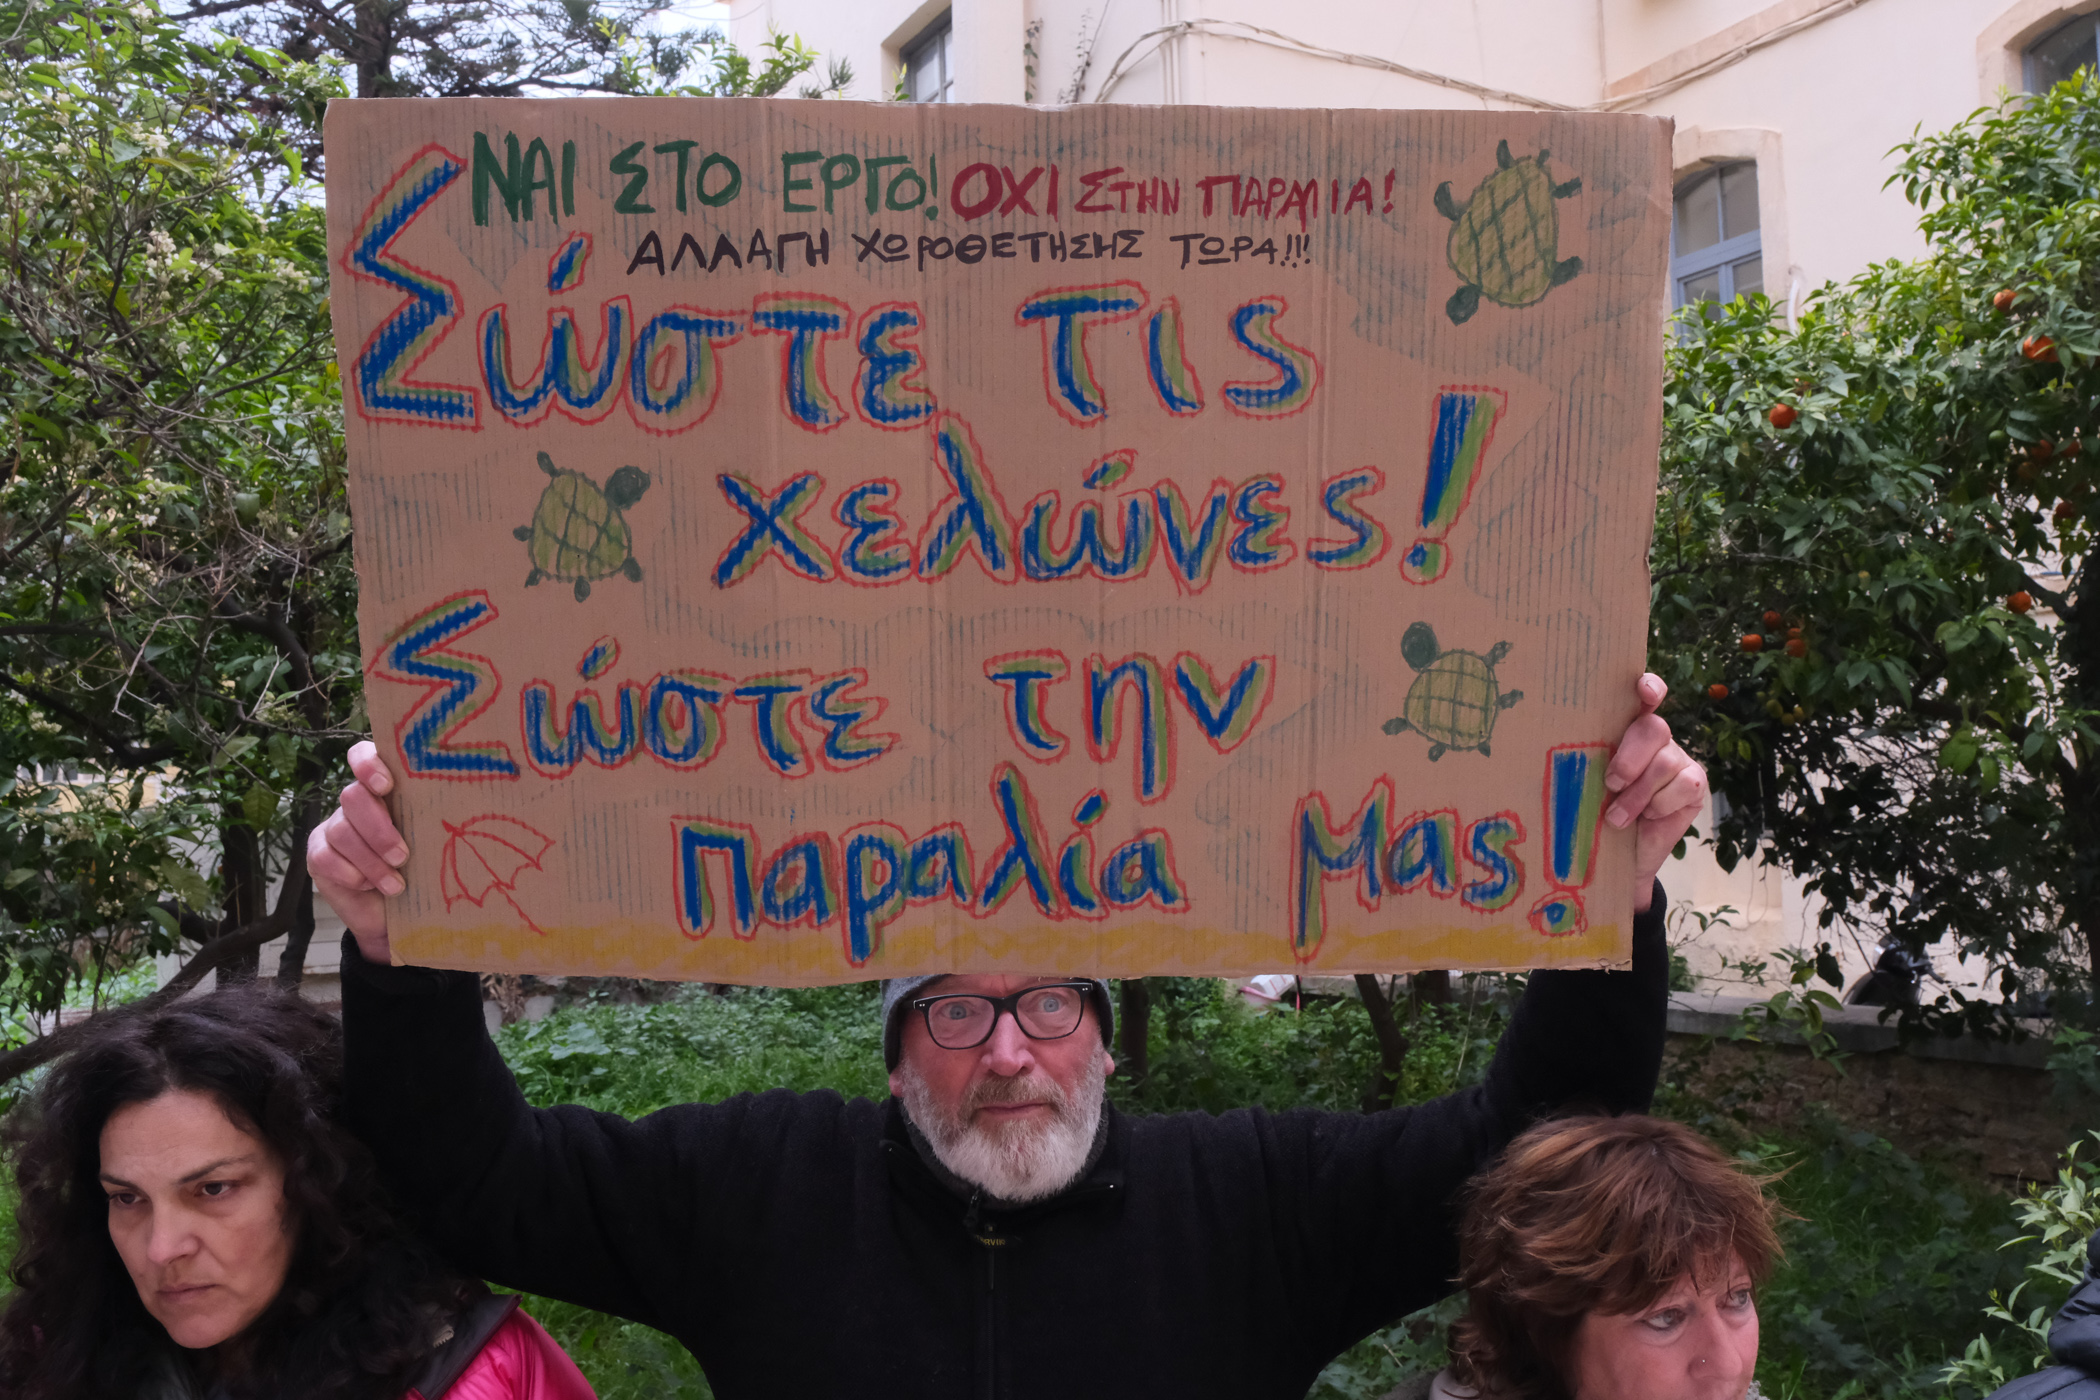 ΝΑΙ ΣΤΟ ΕΡΓΟ! ΟΧΙ ΣΤΗΝ ΠΑΡΑΛΙΑ!
ΑΛΛΑΓΗ ΧΩΡΟΘΕΤΗΣΗΣ ΤΩΡΑ!!!
Σώστε τις
χελώνες!
Σώστε την
παραλία μας!